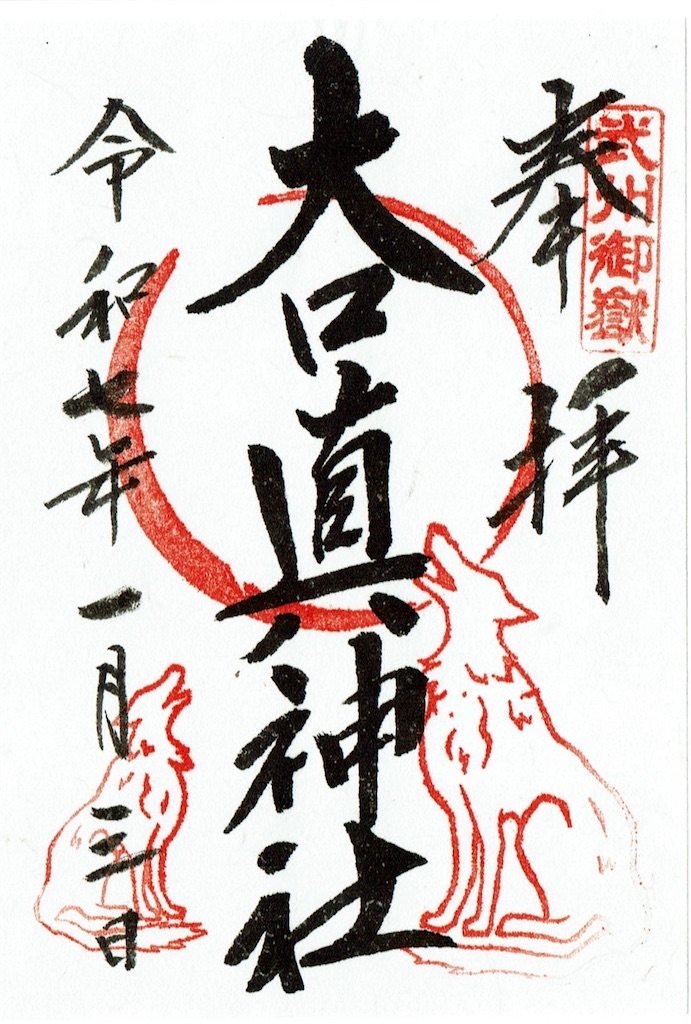 武州御嶽
奉拝
大口真神社
令和七年一月三日